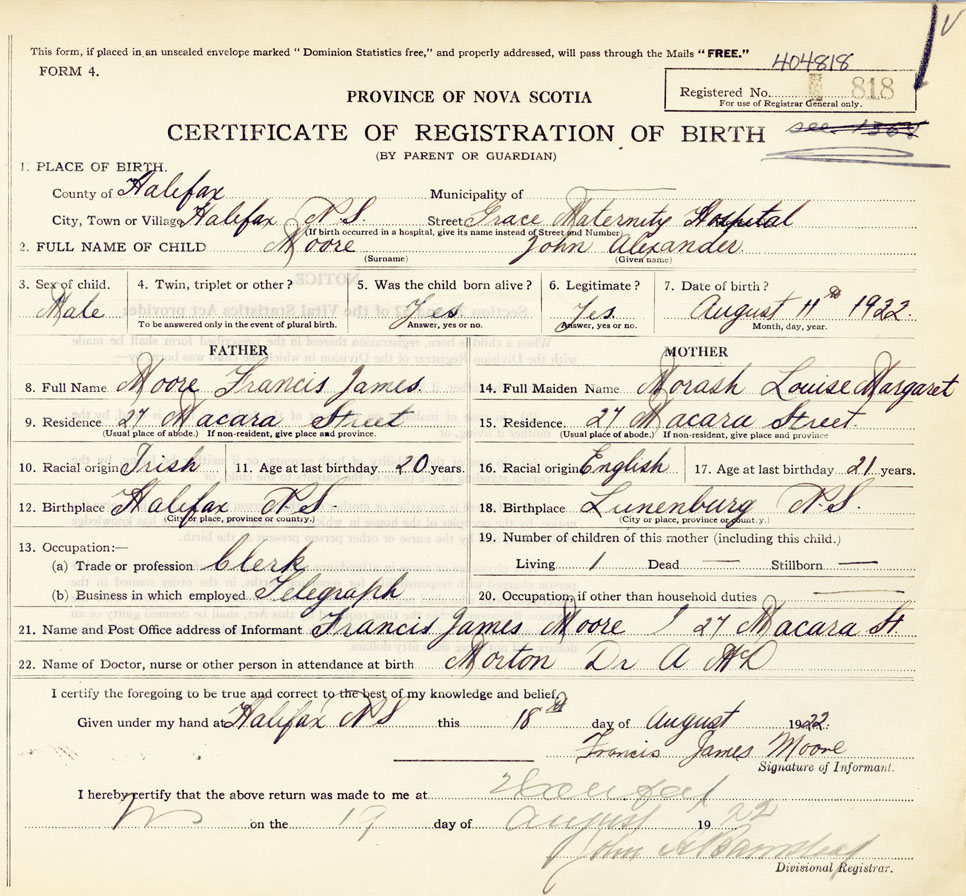 This form, if placed in an unsealed envelope marked "Dominion Statistics free," and properly addressed, will pass through the Mails "FREE."
404818
FORM 4.
Registered No. 818
For use of Registrar General only.
PROVINCE OF NOVA SCOTIA
CERTIFICATE OF REGISTRATION OF BIRTH
see
(BY PARENT OR GUARDIAN)
1. PLACE OF BIRTH.
County of Halifax Municipality of
City, Town or Village Halifax N.S. Street Grace Maternity Hospital
(If birth occurred in a hospital, give its name instead of Street and Number)
2. FULL NAME OF CHILD Moore John Alexander.
(Surname) (Given name)
3. Sex of child. 4. Twin, triplet or other? 5. Was the child born alive? 6. Legitimate? 7. Date of birth?
Male Yes Yes. August 11th 1922.
To be answered only in the event of plural birth. Answer, yes or no. Answer, yes or no. Month, day, year.
FATHER MOTHER
8. Full Name Moore Francis James. 14. Full Maiden Name Morash Louise Margaret
9. Residence 27 Macara Street 15. Residence 27 Macara Street.
(Usual place of abode.) If non-resident, give place and province. (Usual place of abode.) If non-resident, give place and province
10. Racial origin Irish 11. Age at last birthday 20 years. 16. Racial origin English 17. Age at last birthday 21 years.
12. Birthplace Halifax N.S. 18. Birthplace Lunenburg N.S.
(City or place, province or country.) (City or place, province or country.)
13. Occupation:— 19. Number of children of this mother (including this child.)
(a) Trade or profession Clerk Living 1 Dead — Stillborn —
(b) Business in which employed Telegraph 20. Occupation, if other than household duties
21. Name and Post Office address of Informant Francis James Moore / 27 Macara St.
22. Name of Doctor, nurse or other person in attendance at birth Morton Dr A McD
I certify the foregoing to be true and correct to the best of my knowledge and belief.
Given under my hand at Halifax N S this 18th day of August 1922.
Francis James Moore
Signature of Informant.
I hereby certify that the above return was made to me at Halifax
NS on the 19 day of August 1922
John A
Divisional Registrar.